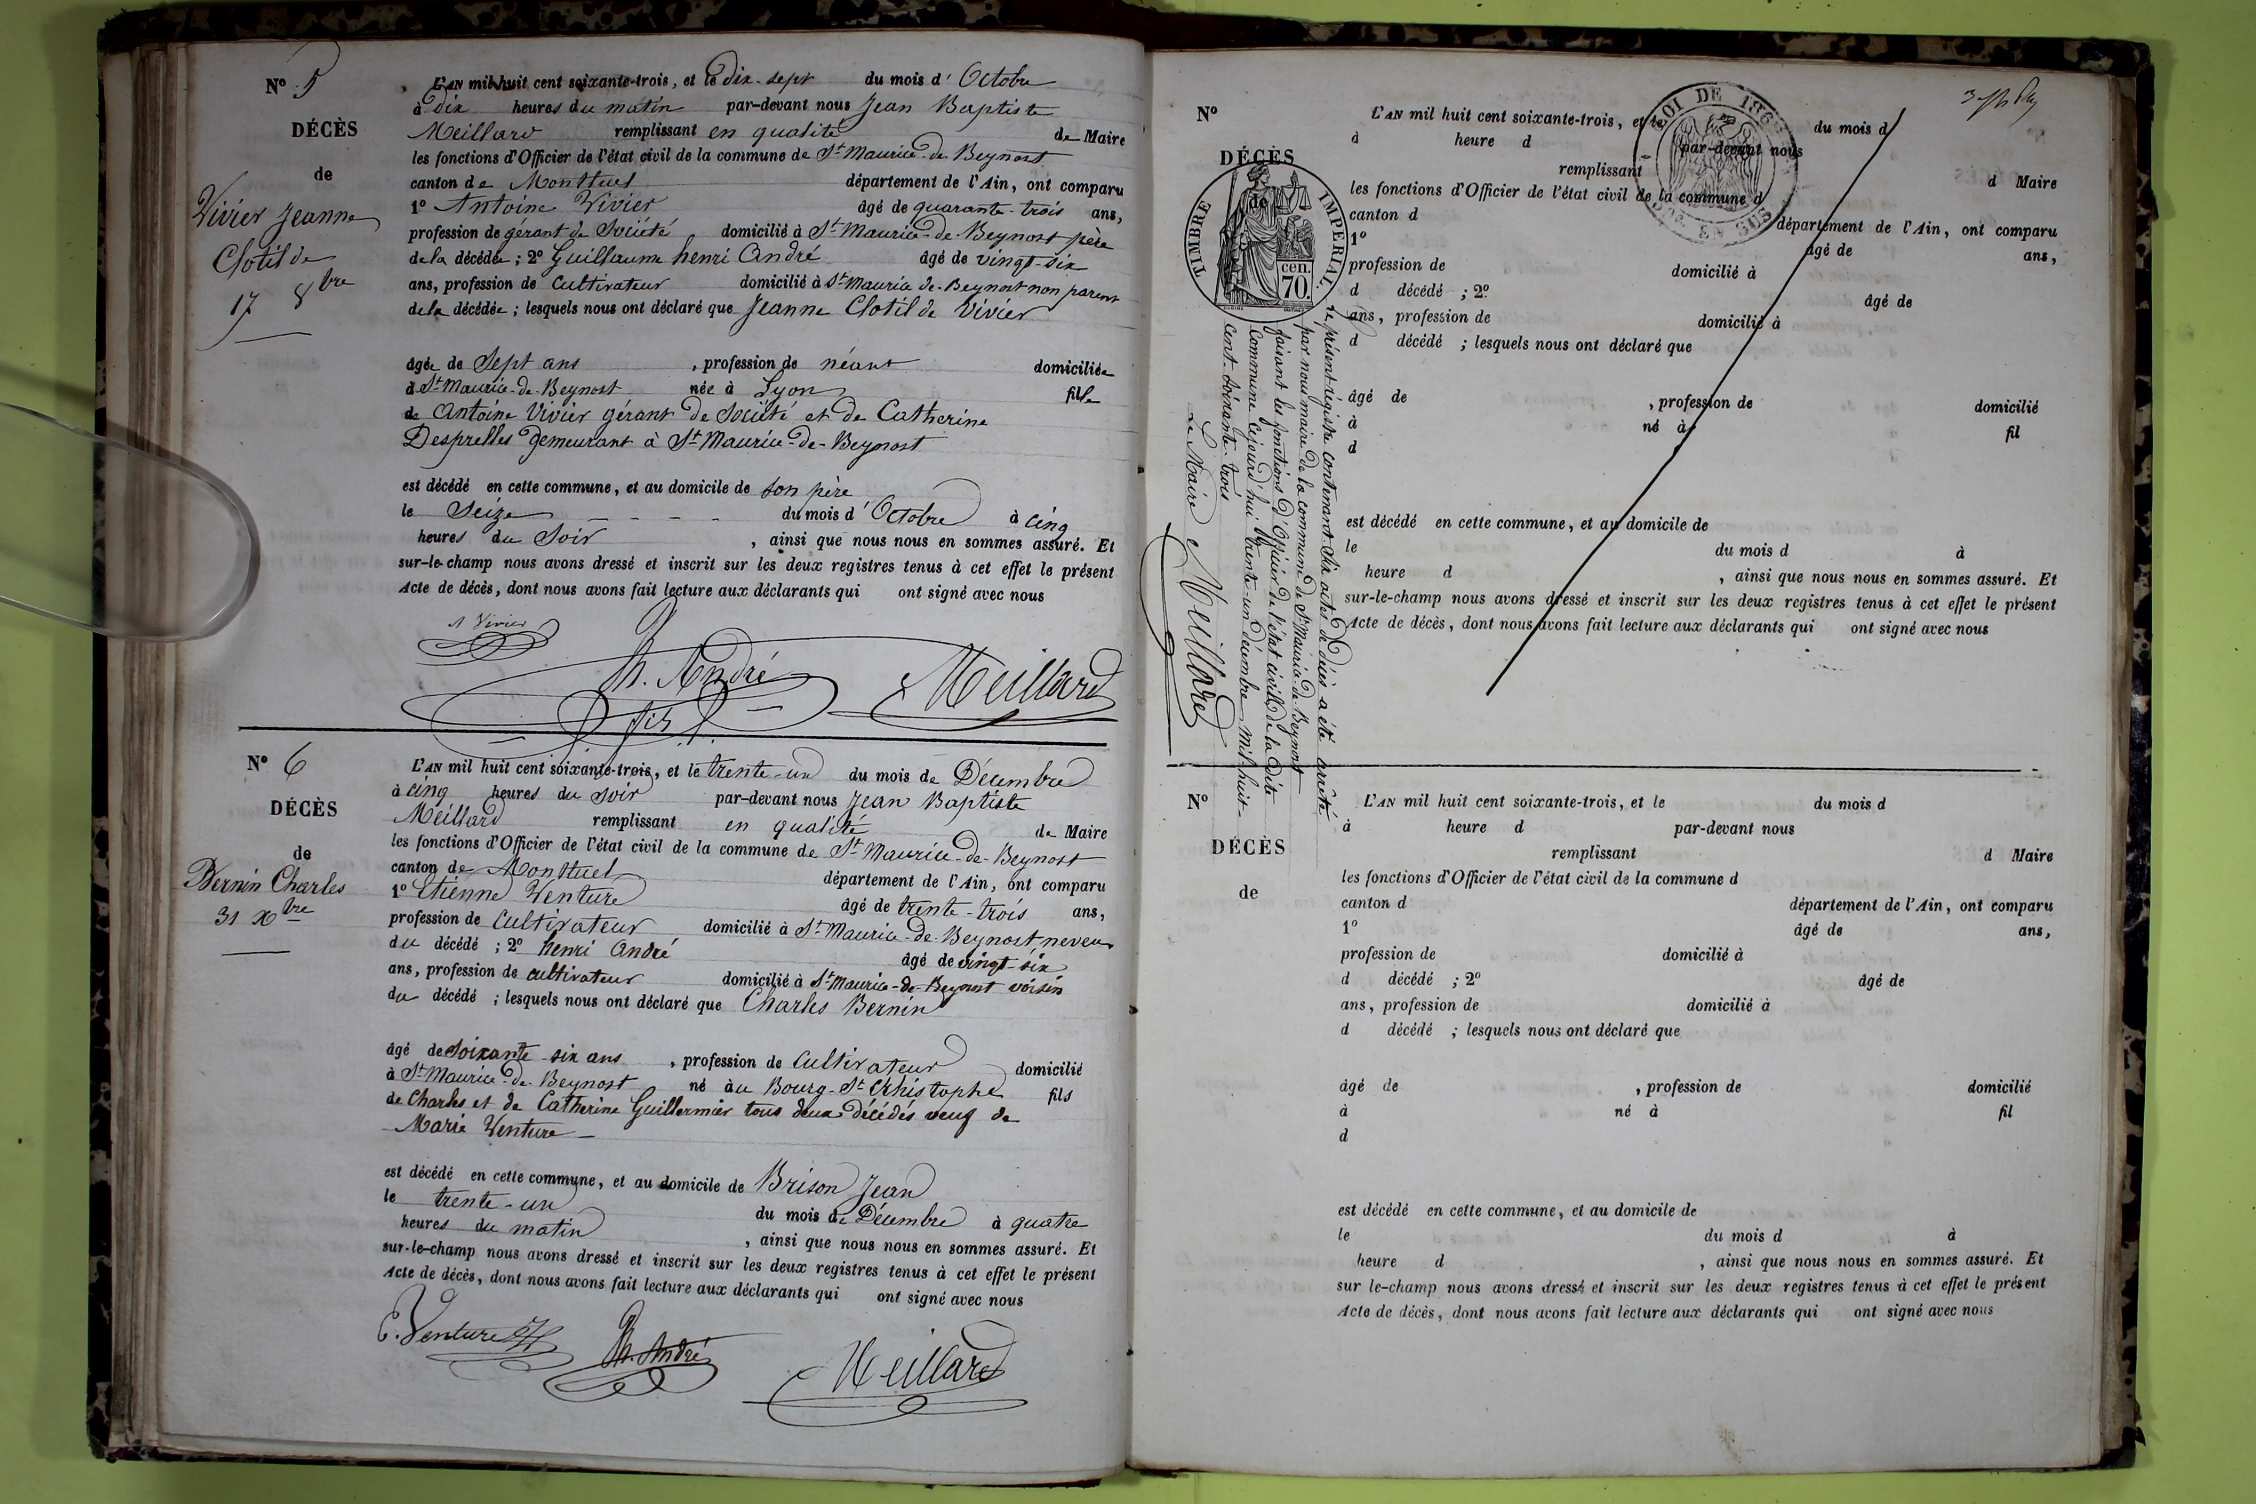 N° 5
DÉCÈS
de
Vivier Jeanne
Clotilde
17 8bre
L'AN mil huit cent soixante-trois, et le dix-sept du mois d'Octobre
à dix heures du matin par-devant nous Jean Baptiste
Meillard remplissant en qualité de Maire
les fonctions d'Officier de l'état civil de la commune de St Maurice-de-Beynost
canton de Montluel département de l'Ain, ont comparu
1° Antoine Vivier âgé de quarante-trois ans,
profession de gérant de Société domicilié à St Maurice-de-Beynost père
de la décédée ; 2° Guillaume henri André âgé de vingt-six
ans, profession de Cultivateur domicilié à St Maurice-de-Beynost non parent
de la décédée ; lesquels nous ont déclaré que Jeanne Clotilde Vivier
âgée de Sept ans , profession de néant domiciliée
à St Maurice-de-Beynost née à Lyon fille
de Antoine Vivier gérant de Société et de Catherine
Desprelles demeurant à St Maurice-de-Beynost
est décédé en cette commune, et au domicile de son père
le Seize du mois d'Octobre à cinq
heures du Soir , ainsi que nous nous en sommes assuré. Et
sur-le-champ nous avons dressé et inscrit sur les deux registres tenus à cet effet le présent
Acte de décès, dont nous avons fait lecture aux déclarants qui ont signé avec nous
A Vivier
h. André
fils
Meillard
N° 6
DÉCÈS
de
Bernin Charles
31 Xbre
L'AN mil huit cent soixante-trois, et le trente-un du mois de Décembre
à cinq heures du soir par-devant nous Jean Baptiste
Meillard remplissant en qualité de Maire
les fonctions d'Officier de l'état civil de la commune de St Maurice-de-Beynost
canton de Montluel département de l'Ain, ont comparu
1° Etienne Venture âgé de trente-trois ans,
profession de Cultivateur domicilié à St Maurice-de-Beynost neveu
du décédé ; 2° henri André âgé de vingt-six
ans, profession de cultivateur domicilié à St Maurice-de-Beynost voisin
du décédé ; lesquels nous ont déclaré que Charles Bernin
âgé de Soixante-six ans , profession de Cultivateur domicilié
à St Maurice-de-Beynost né à au Bourg-St Crhistophe fils
de Charles et de Catherine Guillermier tous deux décédés veuf de
Marie Venture
est décédé en cette commune, et au domicile de Brison Jean
le trente-un du mois de Décembre à quatre
heures du matin , ainsi que nous nous en sommes assuré. Et
sur-le-champ nous avons dressé et inscrit sur les deux registres tenus à cet effet le présent
Acte de décès, dont nous avons fait lecture aux déclarants qui ont signé avec nous
E. Venture
h. André
Meillard
N°
DÉCÈS
de
TIMBRE IMPÉRIAL
70 cen.
LOI DE 1862
2 Des EN SUS
L'AN mil huit cent soixante-trois, et le du mois d
à heure d par-devant nous
remplissant d Maire
les fonctions d'Officier de l'état civil de la commune d
canton d département de l'Ain, ont comparu
1° âgé de ans,
profession de domicilié à
d décédé ; 2° âgé de
ans, profession de domicilié à
d décédé ; lesquels nous ont déclaré que
âgé de , profession de domicilié
à né à fil
d
est décédé en cette commune, et au domicile de
le du mois d à
heure d , ainsi que nous nous en sommes assuré. Et
sur-le-champ nous avons dressé et inscrit sur les deux registres tenus à cet effet le présent
Acte de décès, dont nous avons fait lecture aux déclarants qui ont signé avec nous
Le présent registre contenant Six actes de décès a été arrêté
par nous maire de la commune de St Maurice-de-Beynost
faisant les fonctions d'Officier de l'état civil de la dite
Commune Cejourd'hui trente-un décembre Mil-huit-
cent-soixante-trois
Le Maire
Meillard
N°
DÉCÈS
de
L'AN mil huit cent soixante-trois, et le du mois d
à heure d par-devant nous
remplissant d Maire
les fonctions d'Officier de l'état civil de la commune d
canton d département de l'Ain, ont comparu
1° âgé de ans,
profession de domicilié à
d décédé ; 2° âgé de
ans, profession de domicilié à
d décédé ; lesquels nous ont déclaré que
âgé de , profession de domicilié
à né à fil
d
est décédé en cette commune, et au domicile de
le du mois d à
heure d , ainsi que nous nous en sommes assuré. Et
sur le-champ nous avons dressé et inscrit sur les deux registres tenus à cet effet le présent
Acte de décès, dont nous avons fait lecture aux déclarants qui ont signé avec nous